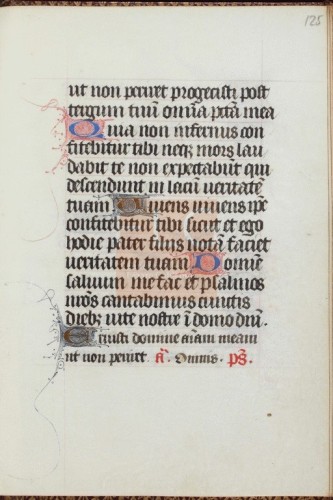 125
ut non periret progecisti post
tergum tuū omīa pctā mea
Quia non infernus con
fitebitur tibi neqz mors lau
dabit te non expectabūt qui
descendunt in lacū veritatē
tuam Uivens vivens ipe
confitebitur tibi sicut et ego
hodie pater filijs notā faciet
veritatem tuam Domine
salvum me fac et psalmos
nrōs cantabimus cunctis
diebz vite nostre ī domo dnī.
Eruisti domine aīam meam
ut non periret A. Omnis. Ps.